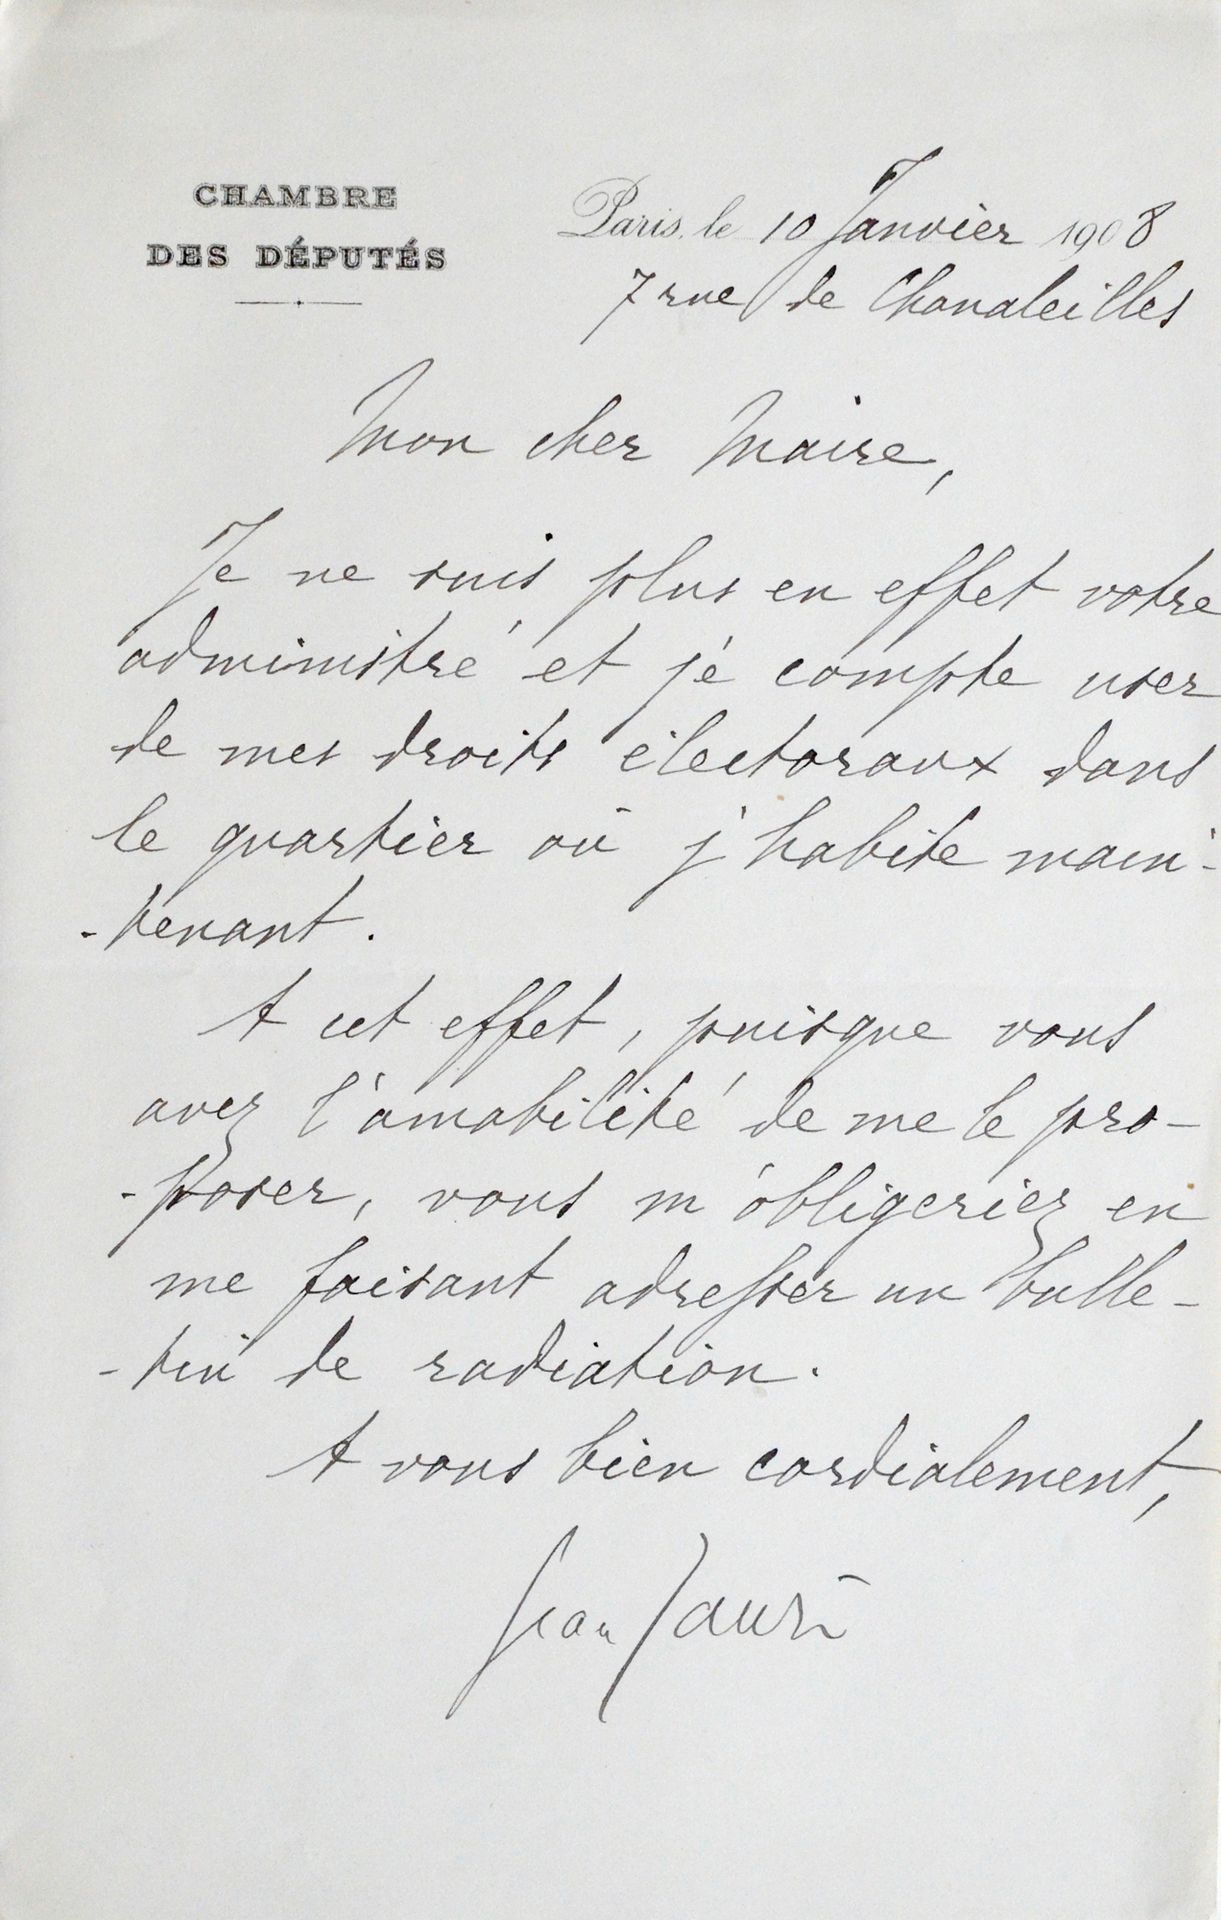 CHAMBRE
DES DÉPUTÉS
Paris, le 10 Janvier 1908
7 rue de Chanaleilles
Mon cher Maire,
Je ne suis plus en effet votre
administré et je compte user
de mes droits électoraux dans
le quartier où j'habite main-
-tenant.
A cet effet, puisque vous
avez l'amabilité de me le pro-
-poser, vous m'obligeriez en
me faisant adresser un bulle-
-tin de radiation.
A vous bien cordialement,
Jean Jaurès